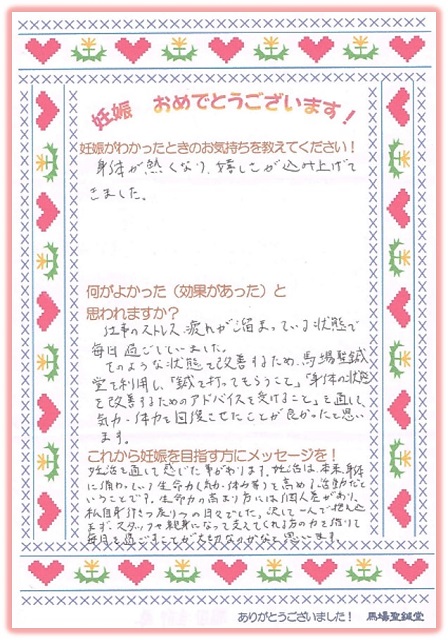 妊娠　おめでとうございます！
妊娠がわかったときのお気持ちを教えてください！
身体が熱くなり、嬉しさが込み上げて
きました。
何がよかった（効果があった）と
思われますか？
仕事のストレス、疲れが溜まっている状態で
毎日過ごしていました。
そのような状態を改善するため、馬場聖鍼
堂を利用し、「鍼を打ってもらうこと」「身体の状態
を改善するためのアドバイスを受けること」を通し、
気力・体力を回復させたことが良かったと思い
ます。
これから妊娠を目指す方にメッセージを！
妊活を通して感じた事があります。妊活は、本来、身体
に備わっている生命力（気力・体力等）を高める活動だと
いうことです。生命力の高まり方には個人差があり、
私自身行きつ戻りつの日々でした。決して一人で抱え込
まず、スタッフや親身になって支えてくれる方の力を借りて
毎日を過ごすことが大切なのかなと思います。
ありがとうございました！　馬場聖鍼堂